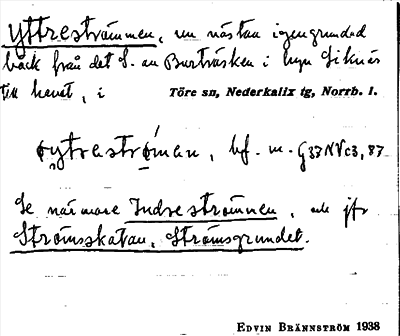 Yttreströmmen, en nästan igengrundad
bäck från det S. om Burträsken i byn Siknäs
till havet, i Töre sn, Nederkalix tg, Norrb. l.
bf. m. G33NVc3, 87
Se närmare Indreströmmen, och jfr
Strömsskatan, Strömsgrundet.
EDVIN BRÄNNSTRÖM 1938